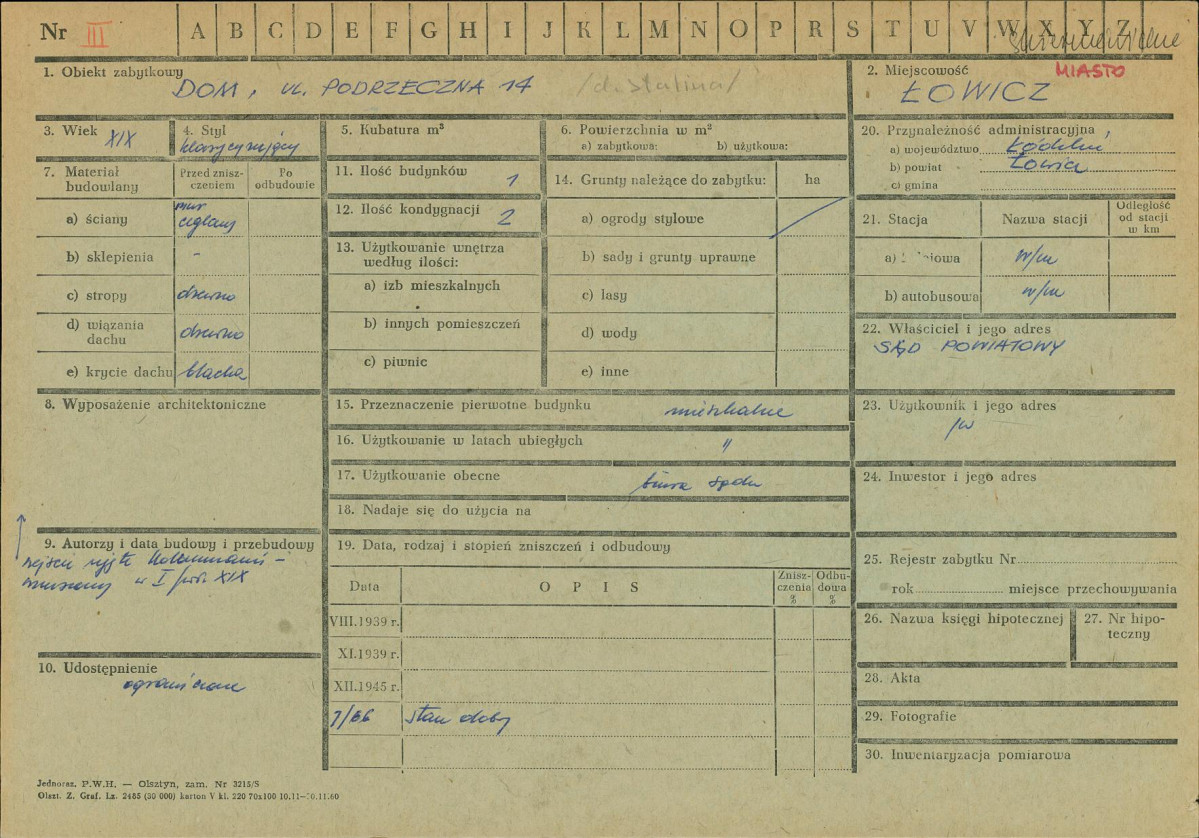 Nr III A B C D E F G H I J K L M N O P R S T U V W X Y Z
1. Obiekt zabytkowy
DOM, ul. PODRZECZNA 14 /d. Stalina/
2. Miejscowość MIASTO
ŁOWICZ
3. Wiek XIX
4. Styl
klasycyzujący
5. Kubatura m³
6. Powierzchnia w m²
a) zabytkowa: b) użytkowa:
20. Przynależność administracyjna
a) województwo Łódzkie
b) powiat Łowicz
c) gmina
7. Materiał budowlany
Przed znisz-
czeniem
Po
odbudowie
a) ściany mur ceglany
b) sklepienia -
c) stropy drewno
d) wiązania
dachu drewno
e) krycie dachu blacha
11. Ilość budynków 1
12. Ilość kondygnacji 2
13. Użytkowanie wnętrza
według ilości:
a) izb mieszkalnych
b) innych pomieszczeń
c) piwnic
14. Grunty należące do zabytku: ha
a) ogrody stylowe
b) sady i grunty uprawne
c) lasy
d) wody
e) inne
21. Stacja Nazwa stacji
Odległość
od stacji
w km
a) w/m
b) autobusowa w/m
22. Właściciel i jego adres
SĄD POWIATOWY
8. Wyposażenie architektoniczne
15. Przeznaczenie pierwotne budynku mieszkalne
16. Użytkowanie w latach ubiegłych "
17. Użytkowanie obecne biura Sądu
18. Nadaje się do użycia na
23. Użytkownik i jego adres
jw
24. Inwestor i jego adres
9. Autorzy i data budowy i przebudowy
w I poł. XIX
10. Udostępnienie
ograniczone
19. Data, rodzaj i stopień zniszczeń i odbudowy
Data O P I S
Znisz-
czenia
%
Odbu-
dowa
%
VIII.1939 r.
XI.1939 r.
XII.1945 r.
7/66 stan dobry
25. Rejestr zabytku Nr
rok miejsce przechowywania
26. Nazwa księgi hipotecznej
27. Nr hipo-
teczny
28. Akta
29. Fotografie
30. Inwentaryzacja pomiarowa
Jednoraz. P.W.H. — Olsztyn, zam. Nr 3215/S
Olszt. Z. Graf. Lz. 2485 (30 000) karton V kl. 220 70x100 10.11—10.11.60